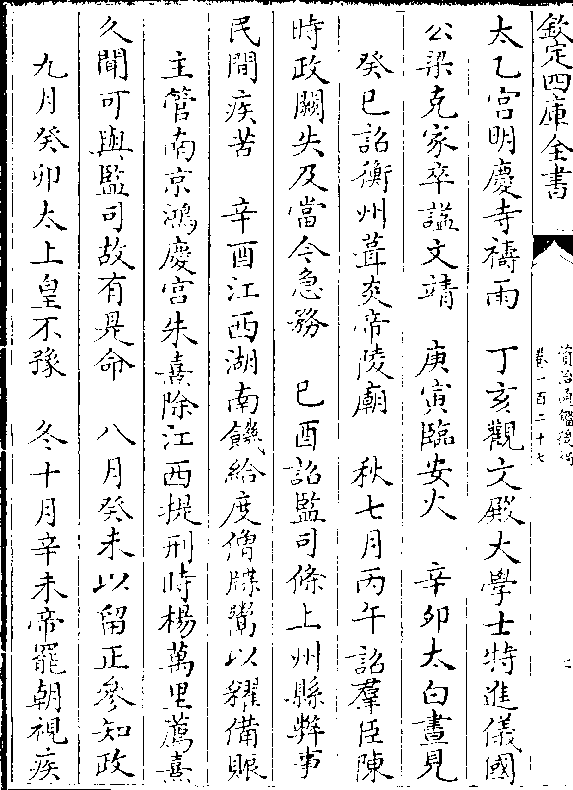 欽定四庫全書
資治通鑑後編
卷一百二十七
七
太乙宮明慶寺禱雨　丁亥觀文殿大學士特進儀國
公梁克家卒諡文靖　庚寅臨安火　辛卯太白晝見
癸巳詔衡州葺炎帝陵廟　秋七月丙午詔羣臣陳
時政闕失及當今急務　己酉詔監司條上州縣弊事
民間疾苦　辛酉江西湖南饑給度僧牒鬻以糴備賑
主管南京鴻慶宮朱熹除江西提刑時楊萬里薦熹
久閒可與監司故有是命　八月癸未以留正參知政
九月癸卯太上皇不豫　冬十月辛未帝罷朝視疾